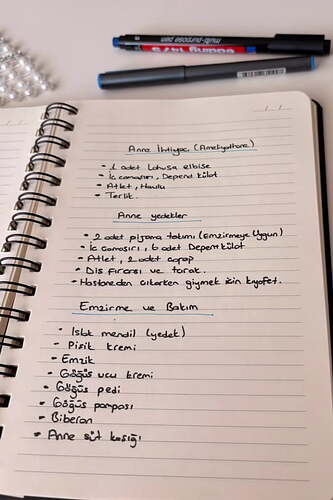 multi-purpose pen
edding 1475
Anne İhtiyaç (Ameliyathane)
- 1 adet lohusa elbise
- İç çamaşırı, Depend külot
- Atlet, Havlu
- Terlik.
Anne yedekler
- 2 adet pijama takımı (Emzirmeye Uygun)
- İç Çamaşırı, 6 adet Depent külot
- Atlet, 2 adet çorap
- Diş Fırçası ve tarak.
- Hastaneden çıkarken giymek için kıyafet.
Emzirme ve Bakım
- Islak mendil (yedek)
- Pişik kremi
- Emzik
- Göğüs ucu kremi
- Göğüs pedi
- Göğüs pompası
- Biberon
- Anne süt kaşığı